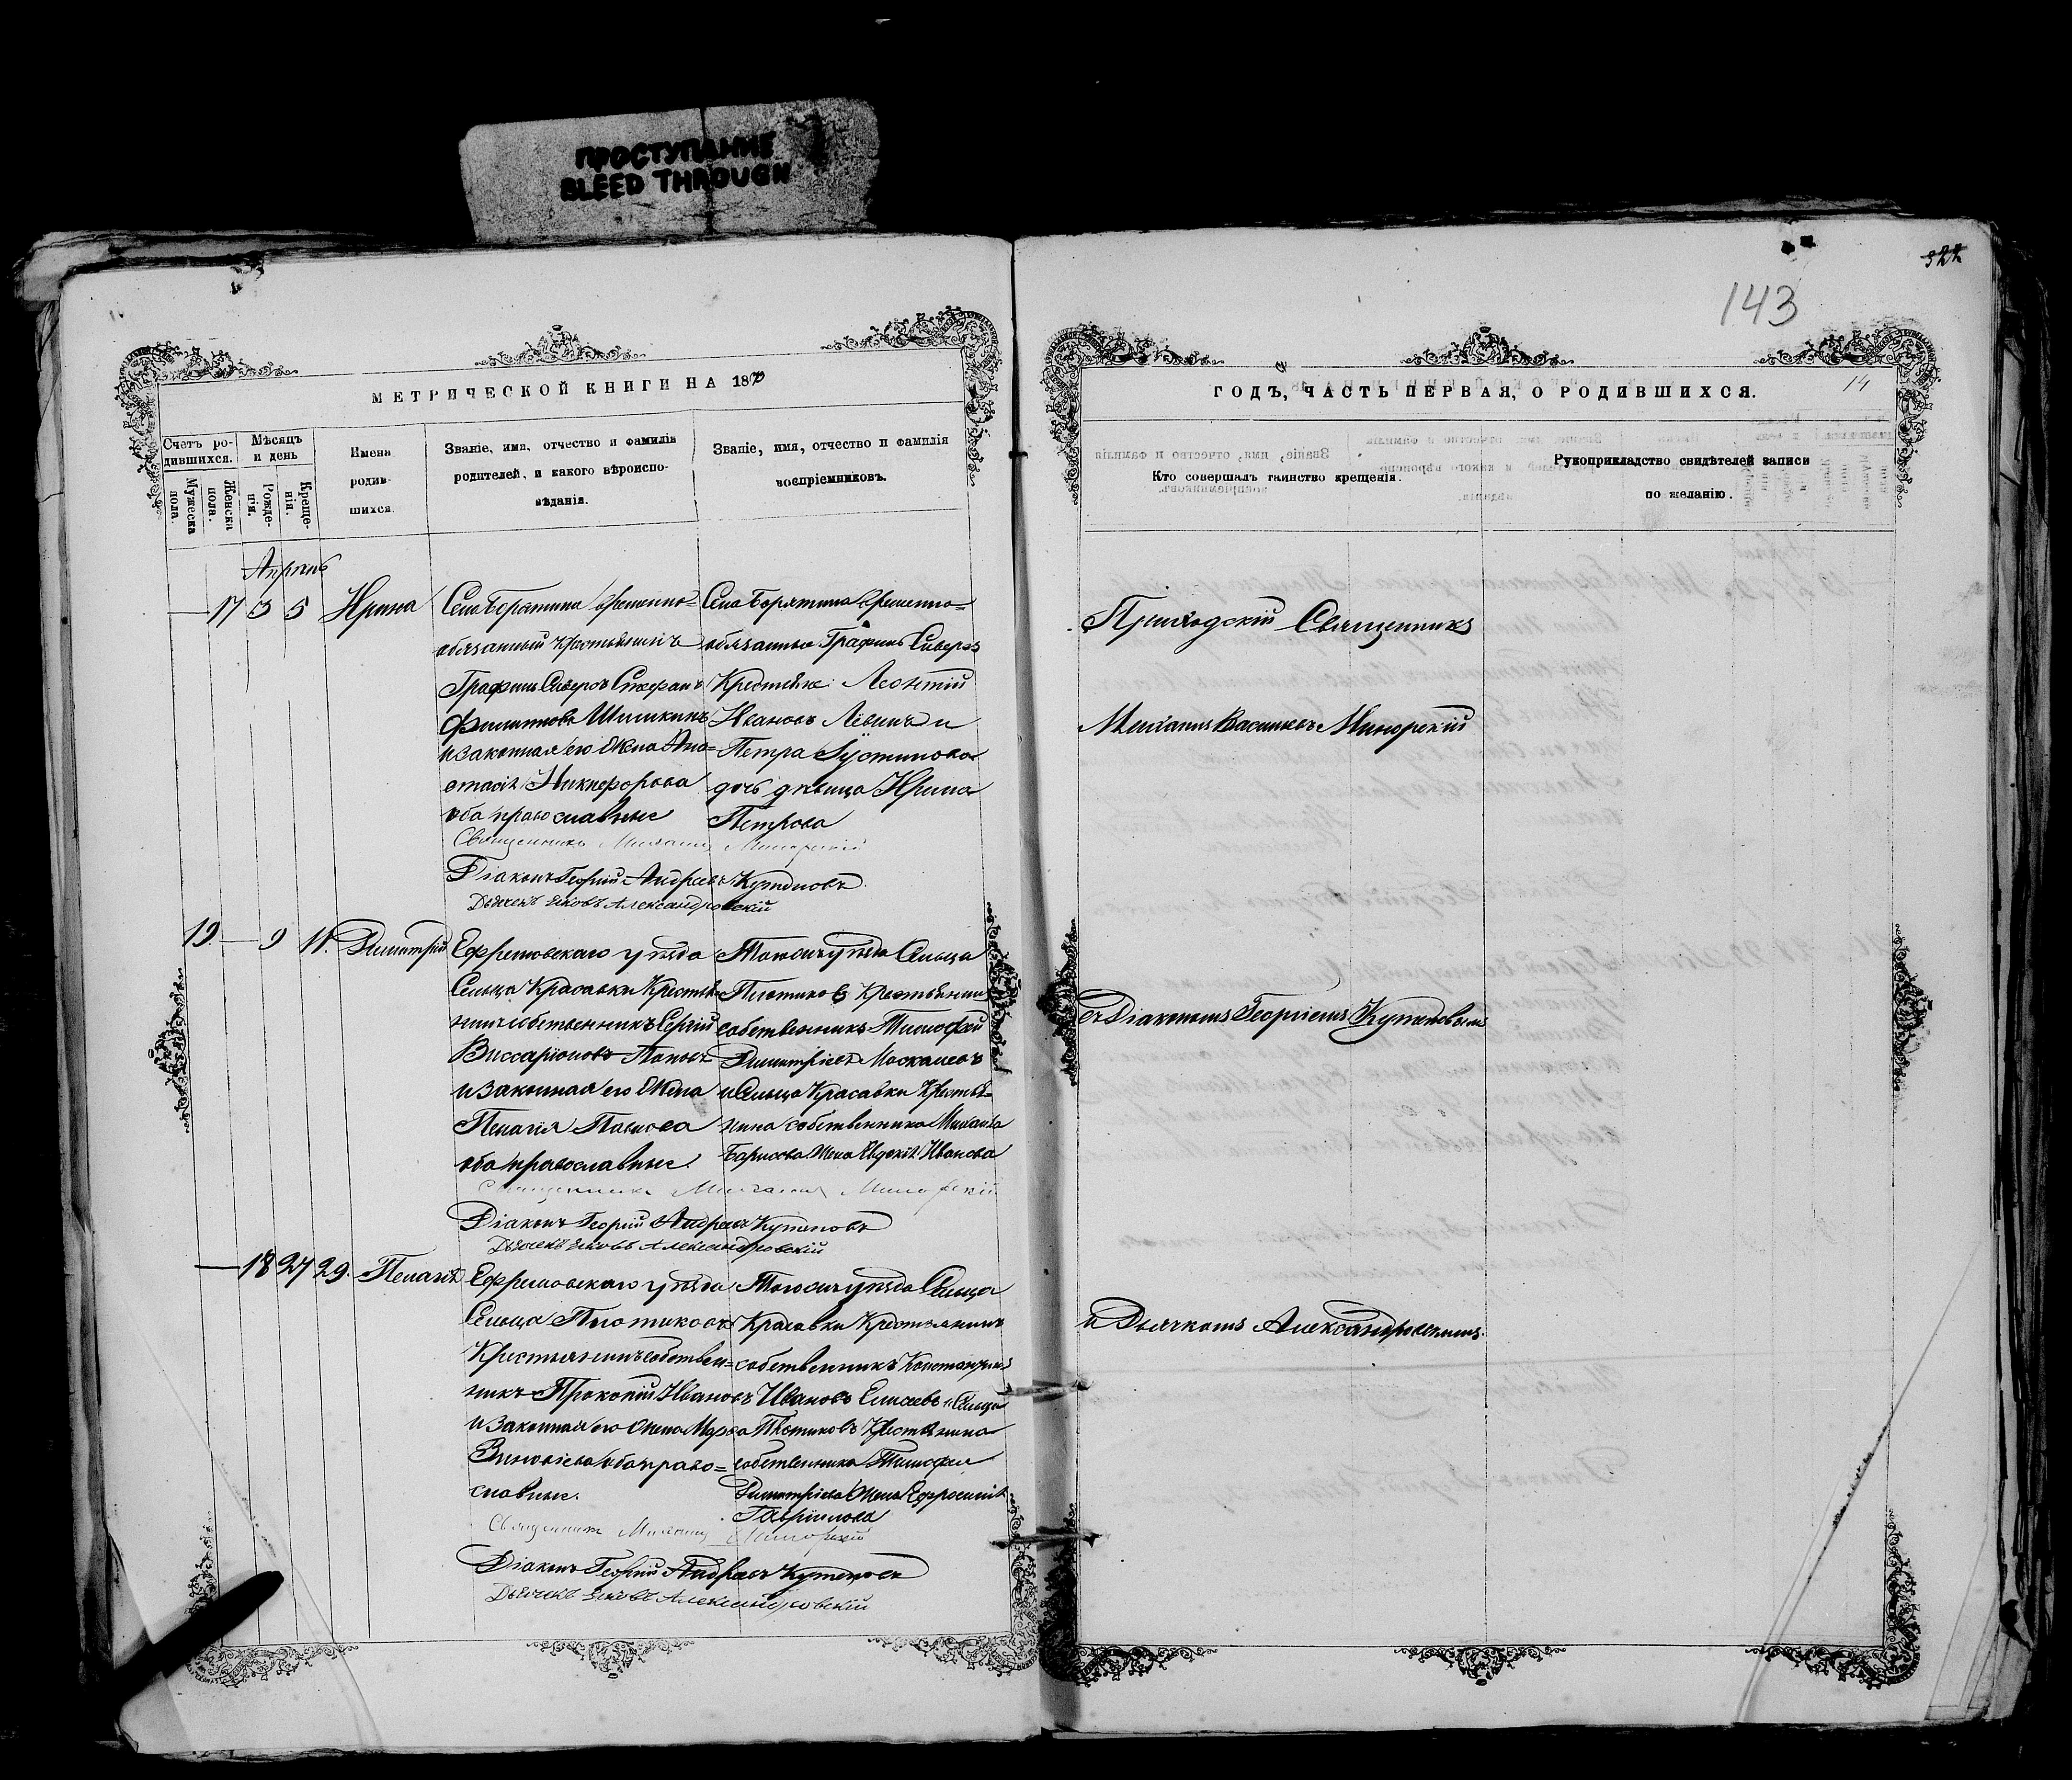 ПРОСТУПАНИЕ
BLEED THROUGH
143
14
МЕТРИЧЕСКОЙ КНИГИ НА 1870
Счетъ родившихся.
Мужеска пола.
Женска пола.
Мѣсяцъ и день
Рожденія.
Крещенія.
Имена родившихся.
Званіе, имя, отчество и фамилія
родителей, и какого вѣроиспо-
вѣданія.
Званіе, имя, отчество и фамилія
воспріемниковъ.
Апрѣль
17 3 5 Ирина
Села Борятина временно=
обязанный крестьянинъ
Графини Сиверсъ Стефанъ
Филипповъ Шишкинъ
и законная его жена Ана=
стасія Никифорова
оба православные
Села Борятина временно=
обязанные Графинь Сиверсъ
Крестьяне: Леонтій
Ивановъ Лёвинъ и
Петра Іустинова
дочь дѣвица Ирина
Петрова
Священникъ Михаилъ Минорскій
Діаконъ Георгій Андреевъ Кутеповъ
Дьячекъ Яковъ Александровскій
19 9 11. Димитрій
Ефремовскаго уѣзда
Сельца Красавки Крестья=
нинъ собственникъ Сергій
Виссаріоновъ Поповъ
и законная его жена
Пелагія Павлова
оба православные.
Того жъ уѣзда Сельца
Плотиковъ Крестьянинъ
собственникъ Тимофей
Димитріевъ Москалевъ
и Сельца Красавки Крестья=
нина собственника Михаила
Борисова жена Евдокія Иванова
Священникъ Михаилъ Минорскій
Діаконъ Георгій Андреевъ Кутеповъ
Дьячекъ Яковъ Александровскій
18 27 29. Пелагія
Ефремовскаго уѣзда
Сельца Плотиковъ
Крестьянинъ собствен=
никъ Прокопій Ивановъ
и законная его жена Марѳа
Зиновіева оба право=
славные.
Того жъ уѣзда Сельца
Красавки Крестьянинъ
собственникъ Константинъ
Ивановъ Елисеевъ и Сельца
Плотиковъ Крестьянина
собственника Тимофея
Димитріева жена Ефросинія
Гавріилова
Священникъ Михаилъ Минорскій
Діаконъ Георгій Андреевъ Кутеповъ
Дьячекъ Яковъ Александровскій
ГОДЪ, ЧАСТЬ ПЕРВАЯ, О РОДИВШИХСЯ.
Кто совершалъ таинство крещенія.
Рукоприкладство свидѣтелей записи
по желанію.
Приходскій Священникъ
Михаилъ Васильевъ Минорскій
съ Діакономъ Георгіемъ Кутеповымъ
и Дьячкомъ Александровскимъ.